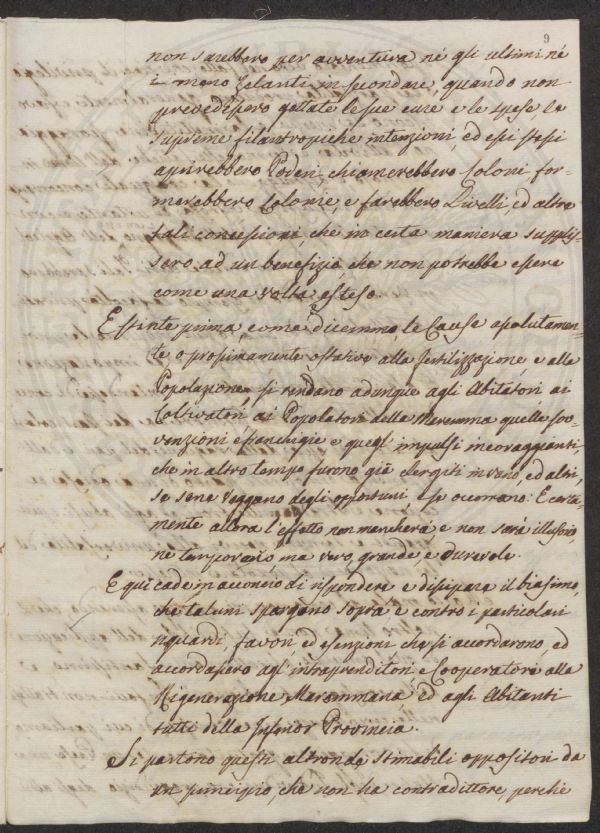 9
non sarebbero per avventura né gli ultimi né
i meno zelanti in secondare, quando non
prevedessero gettate le sue cure e le spese, le
supreme filantropiche intenzioni, ed essi stessi
aprirebbero Poderi, chiamerebbero Coloni, for-
merebbero Colonie, e farebbero Livelli, ed altre
tali concessioni, che in certa maniera supplis-
sero ad un benefizio, che non potrebbe essere
come una volta esteso.
Estinte prima, come dicemmo, le Cause assolutamen-
te, o prossimamente ostative alla fertilizzazione, e alla
Popolazione, si rendano adunque agli Abitatori ai
Coltivatori ai Popolatori della Maremma quelle sov-
venzioni, e franchigie e quegl' impulsi incoraggianti,
che in altro tempo furono già elargiti invano, ed altri,
se sene veggano degli opportuni, e se occorrano: E certa-
mente allora l'effetto non mancherà, e non sarà illusorio
ne temporario, ma vero, grande, e durevole.
E qui cade in acconcio di rispondere e dissipare il biasimo,
che taluni spargano sopra e contro i particolari
riguardi, favori ed esenzioni che si accordarono, ed
accordassero agl' intraprenditori, e Cooperatori alla
Rigenerazione Maremmana, ed agli Abitanti
tutti della Inferior Provincia.
Si partono questi altronde stimabili oppositori da
un principio, che non ha contradittore, perchè